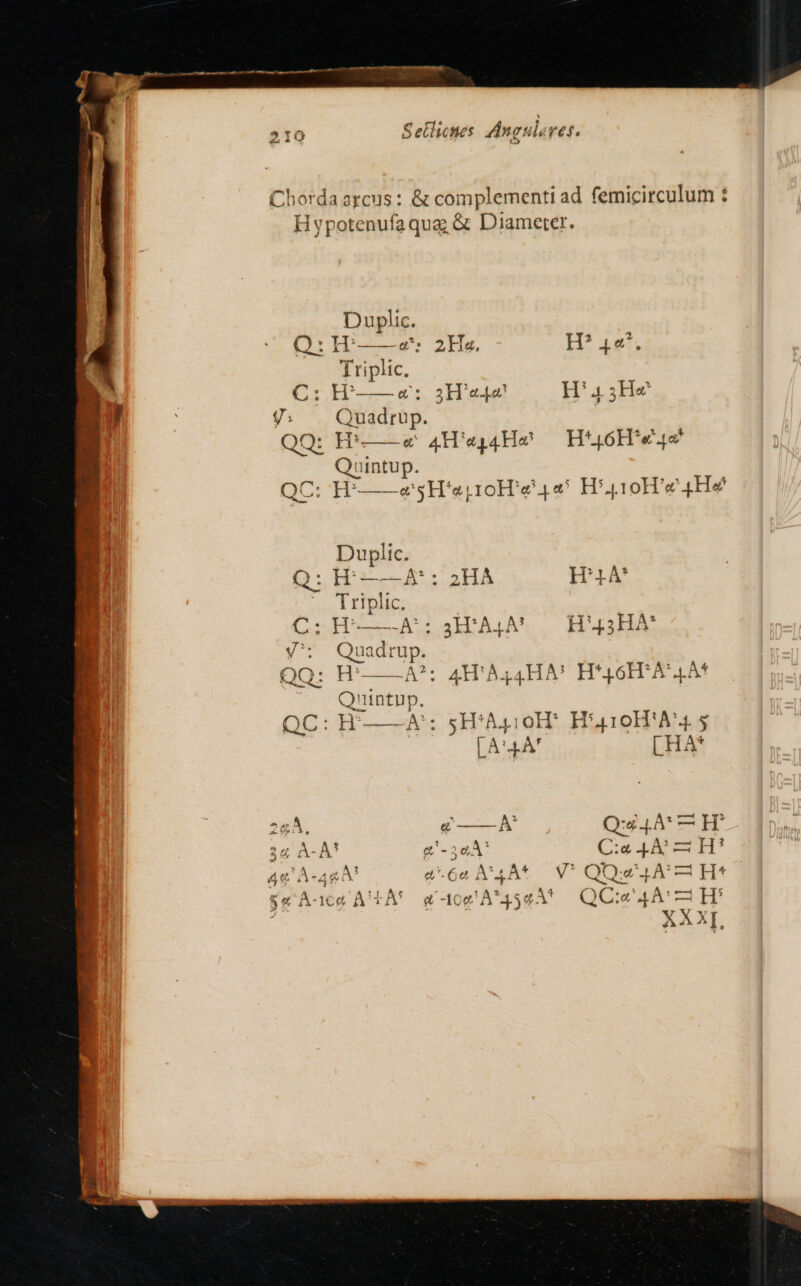 210 Sectiones Angulares.
Chorda arcus: & complementi ad semicirculum:
Hypotenusa quæ & Diameter.
Duplic.
Q: H²——α²: 2Hα. H² ɟ α².
Triplic.
C: H²——α²: 3H²α ɟ α³ H³ ɟ 3Hα²
√: Quadrup.
QQ: H²——α² 4H³α ɟ 4Hα³ H⁴ ɟ 6H²α² ɟ α⁴
Quintup.
QC: H²——α² 5H⁴α ɟ 10H²α³ ɟ α⁵ H⁵ ɟ 10H³α² ɟ Hα⁴
Duplic.
Q: H²——A²: 2HA H² ɟ A²
Triplic.
C: H²——A²: 3H²A ɟ A³ H³ ɟ 3HA²
√²: Quadrup.
QQ: H²——A²: 4H³A ɟ 4HA³ H⁴ ɟ 6H²A² ɟ A⁴
Quintup.
QC: H²——A²: 5H⁴A ɟ 10H² H⁵ ɟ 10H³A² ɟ 5
[A³ ɟ A⁵ [HA⁴
2αA, α²——A² Q:α ɟ A² = H²
3α²A-A³ α³-3αA² C:α² ɟ A² = H³
4α³A-4αA³ α⁴-6α²A² ɟ A⁴ V² QQ:α² ɟ A² = H⁴
5α⁴A-10α²A³ ɟ A⁵ α⁵-10α³A² ɟ 5αA⁴ QC:α² ɟ A² = H⁵
XXXI.